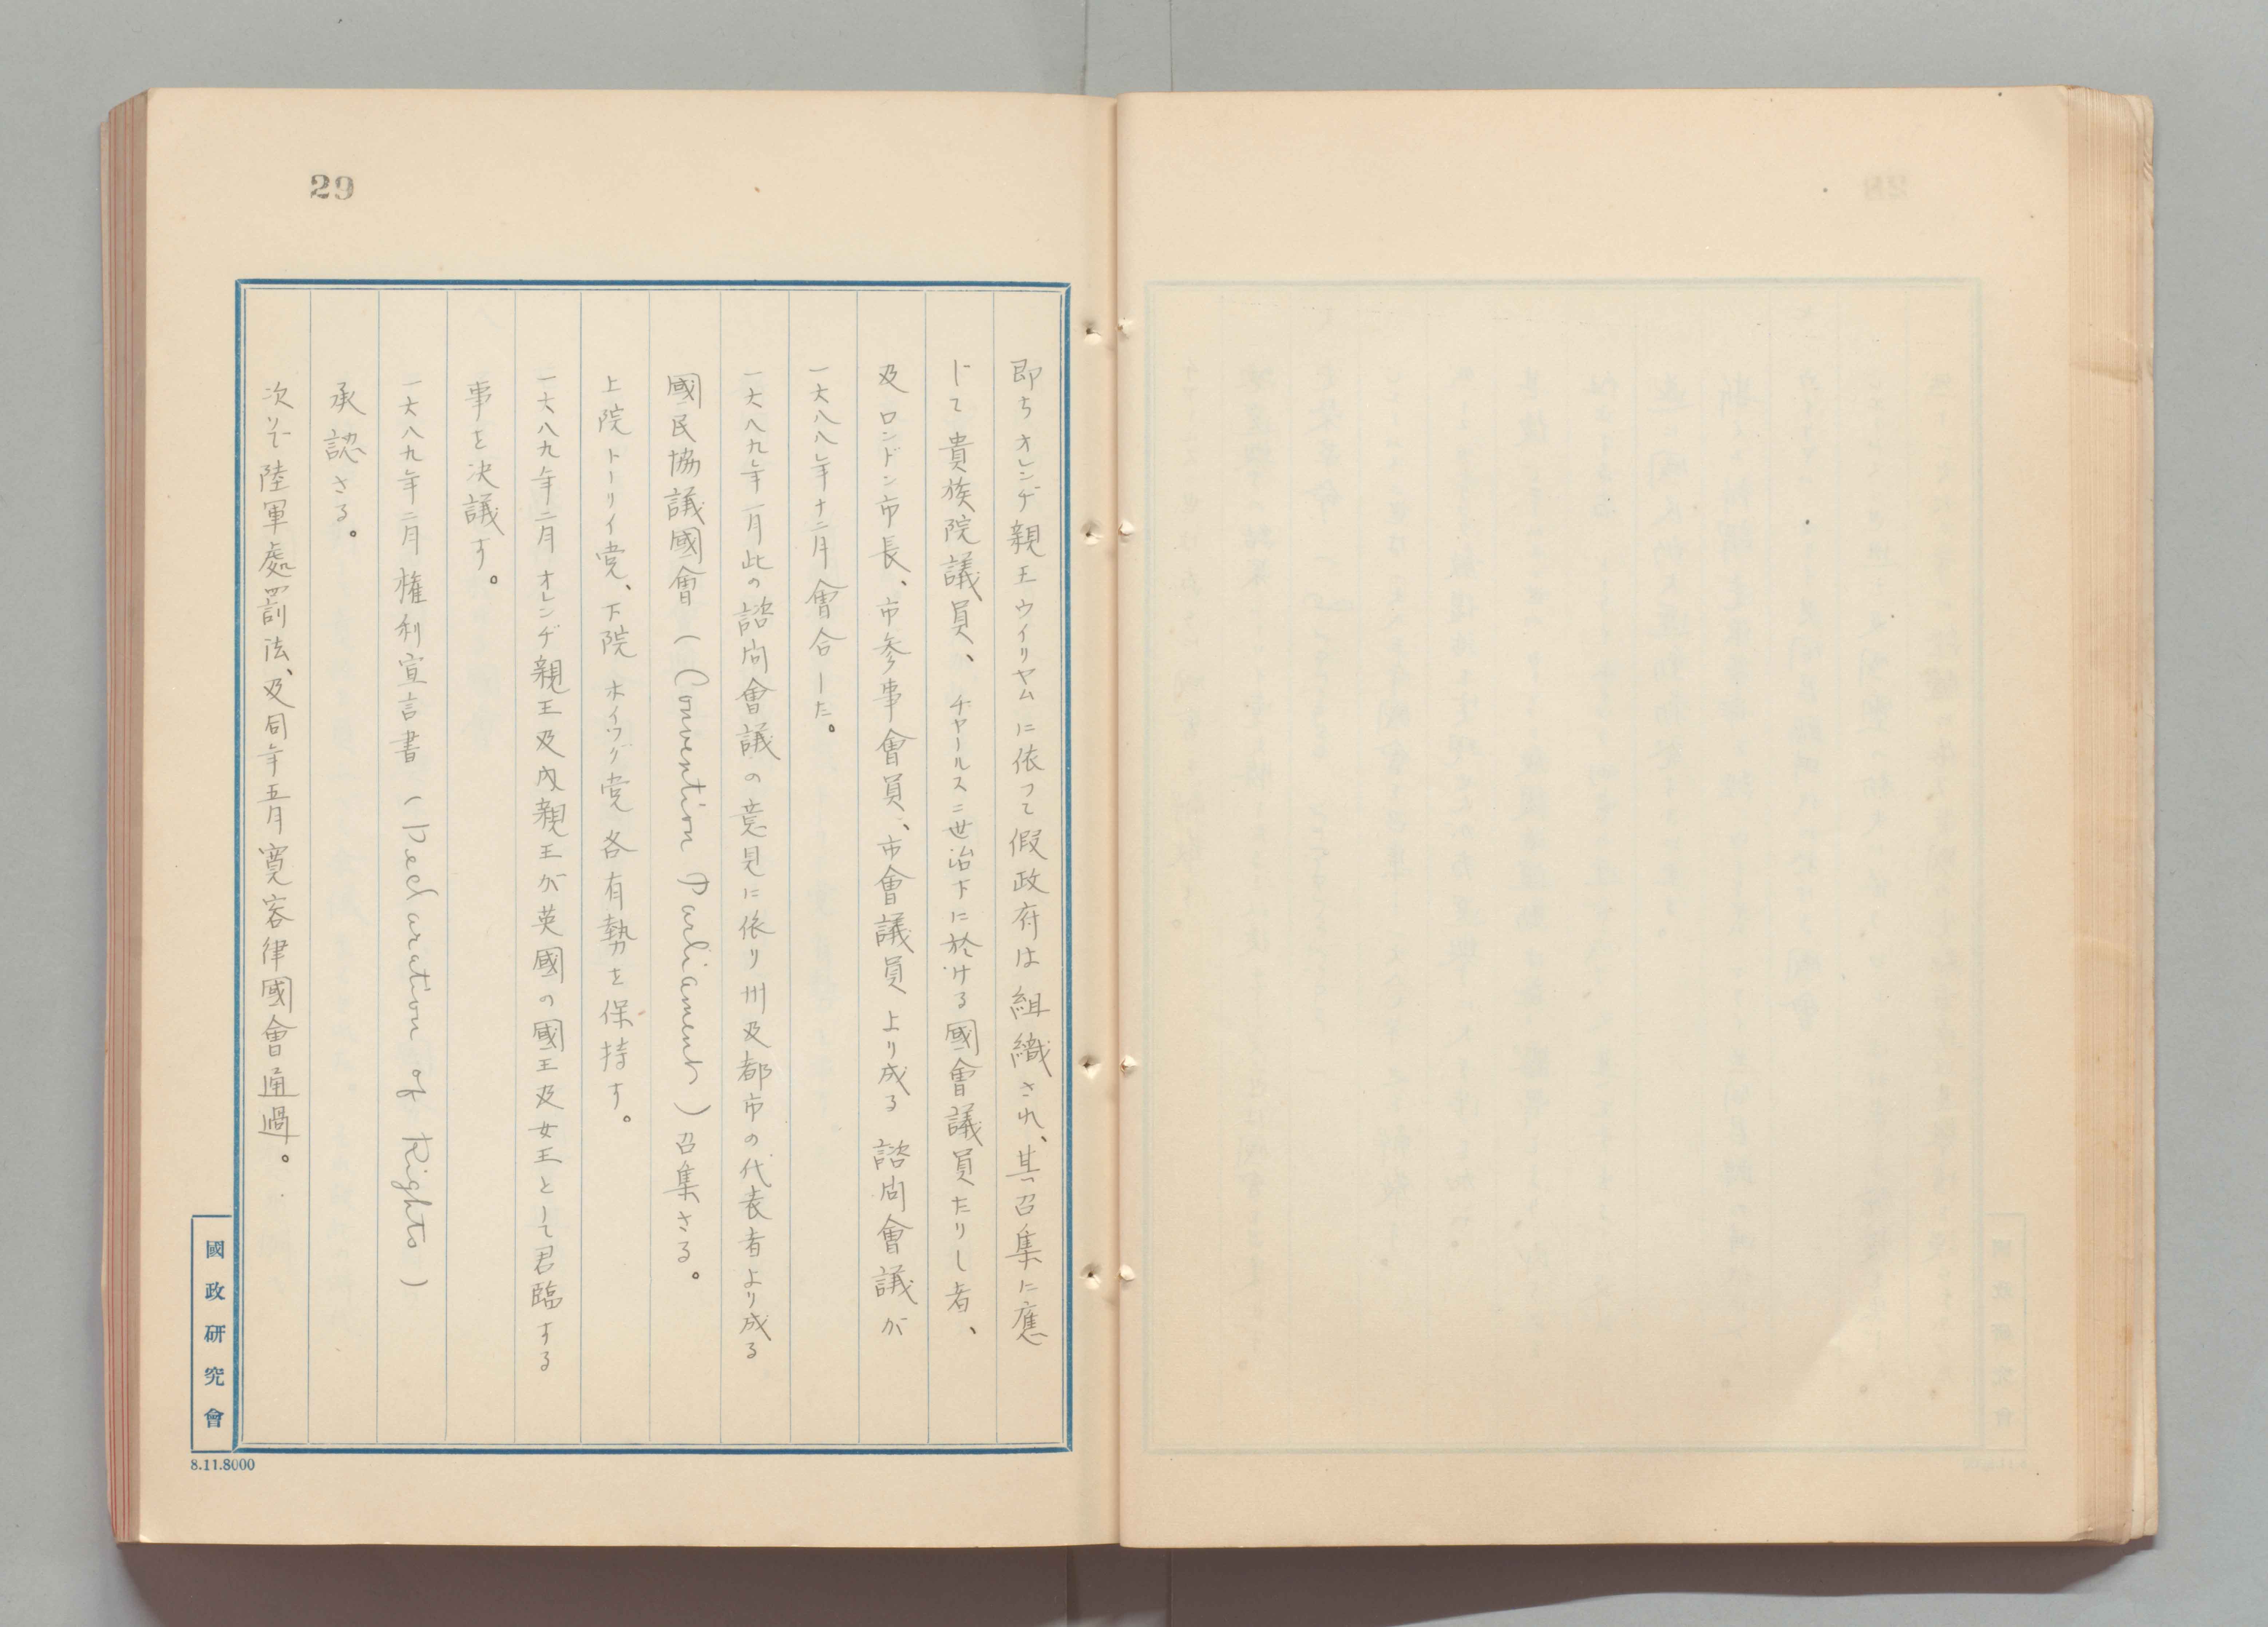 29
即ちオレンヂ親王ウイリヤムに依つて假政府は組織され、其召集に應
じて貴族院議員、チヤールス二世治下に於ける國會議員たりし者、
及ロンドン市長、市参事會員、市會議員より成る諮問會議が
一六八八年十二月會合した。
一六八九年一月此の諮問會議の意見に依り州及都市の代表者より成る
國民協議國會（Convention Parliament）召集さる。
上院トーリイ党、下院ホイツグ党各有勢を保持す。
一六八九年二月オレンヂ親王及内親王が英國の國王及女王として君臨する
事を決議す。
一六八九年二月権利宣言書（Declaration of Rights）
承認さる。
次いで陸軍處罰法、及同年五月寛容律國會通過。
國政研究會
8.11.8000